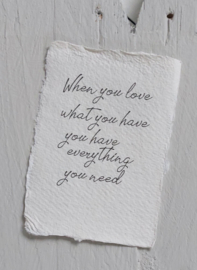 When you love
what you have
you have
everything
you need